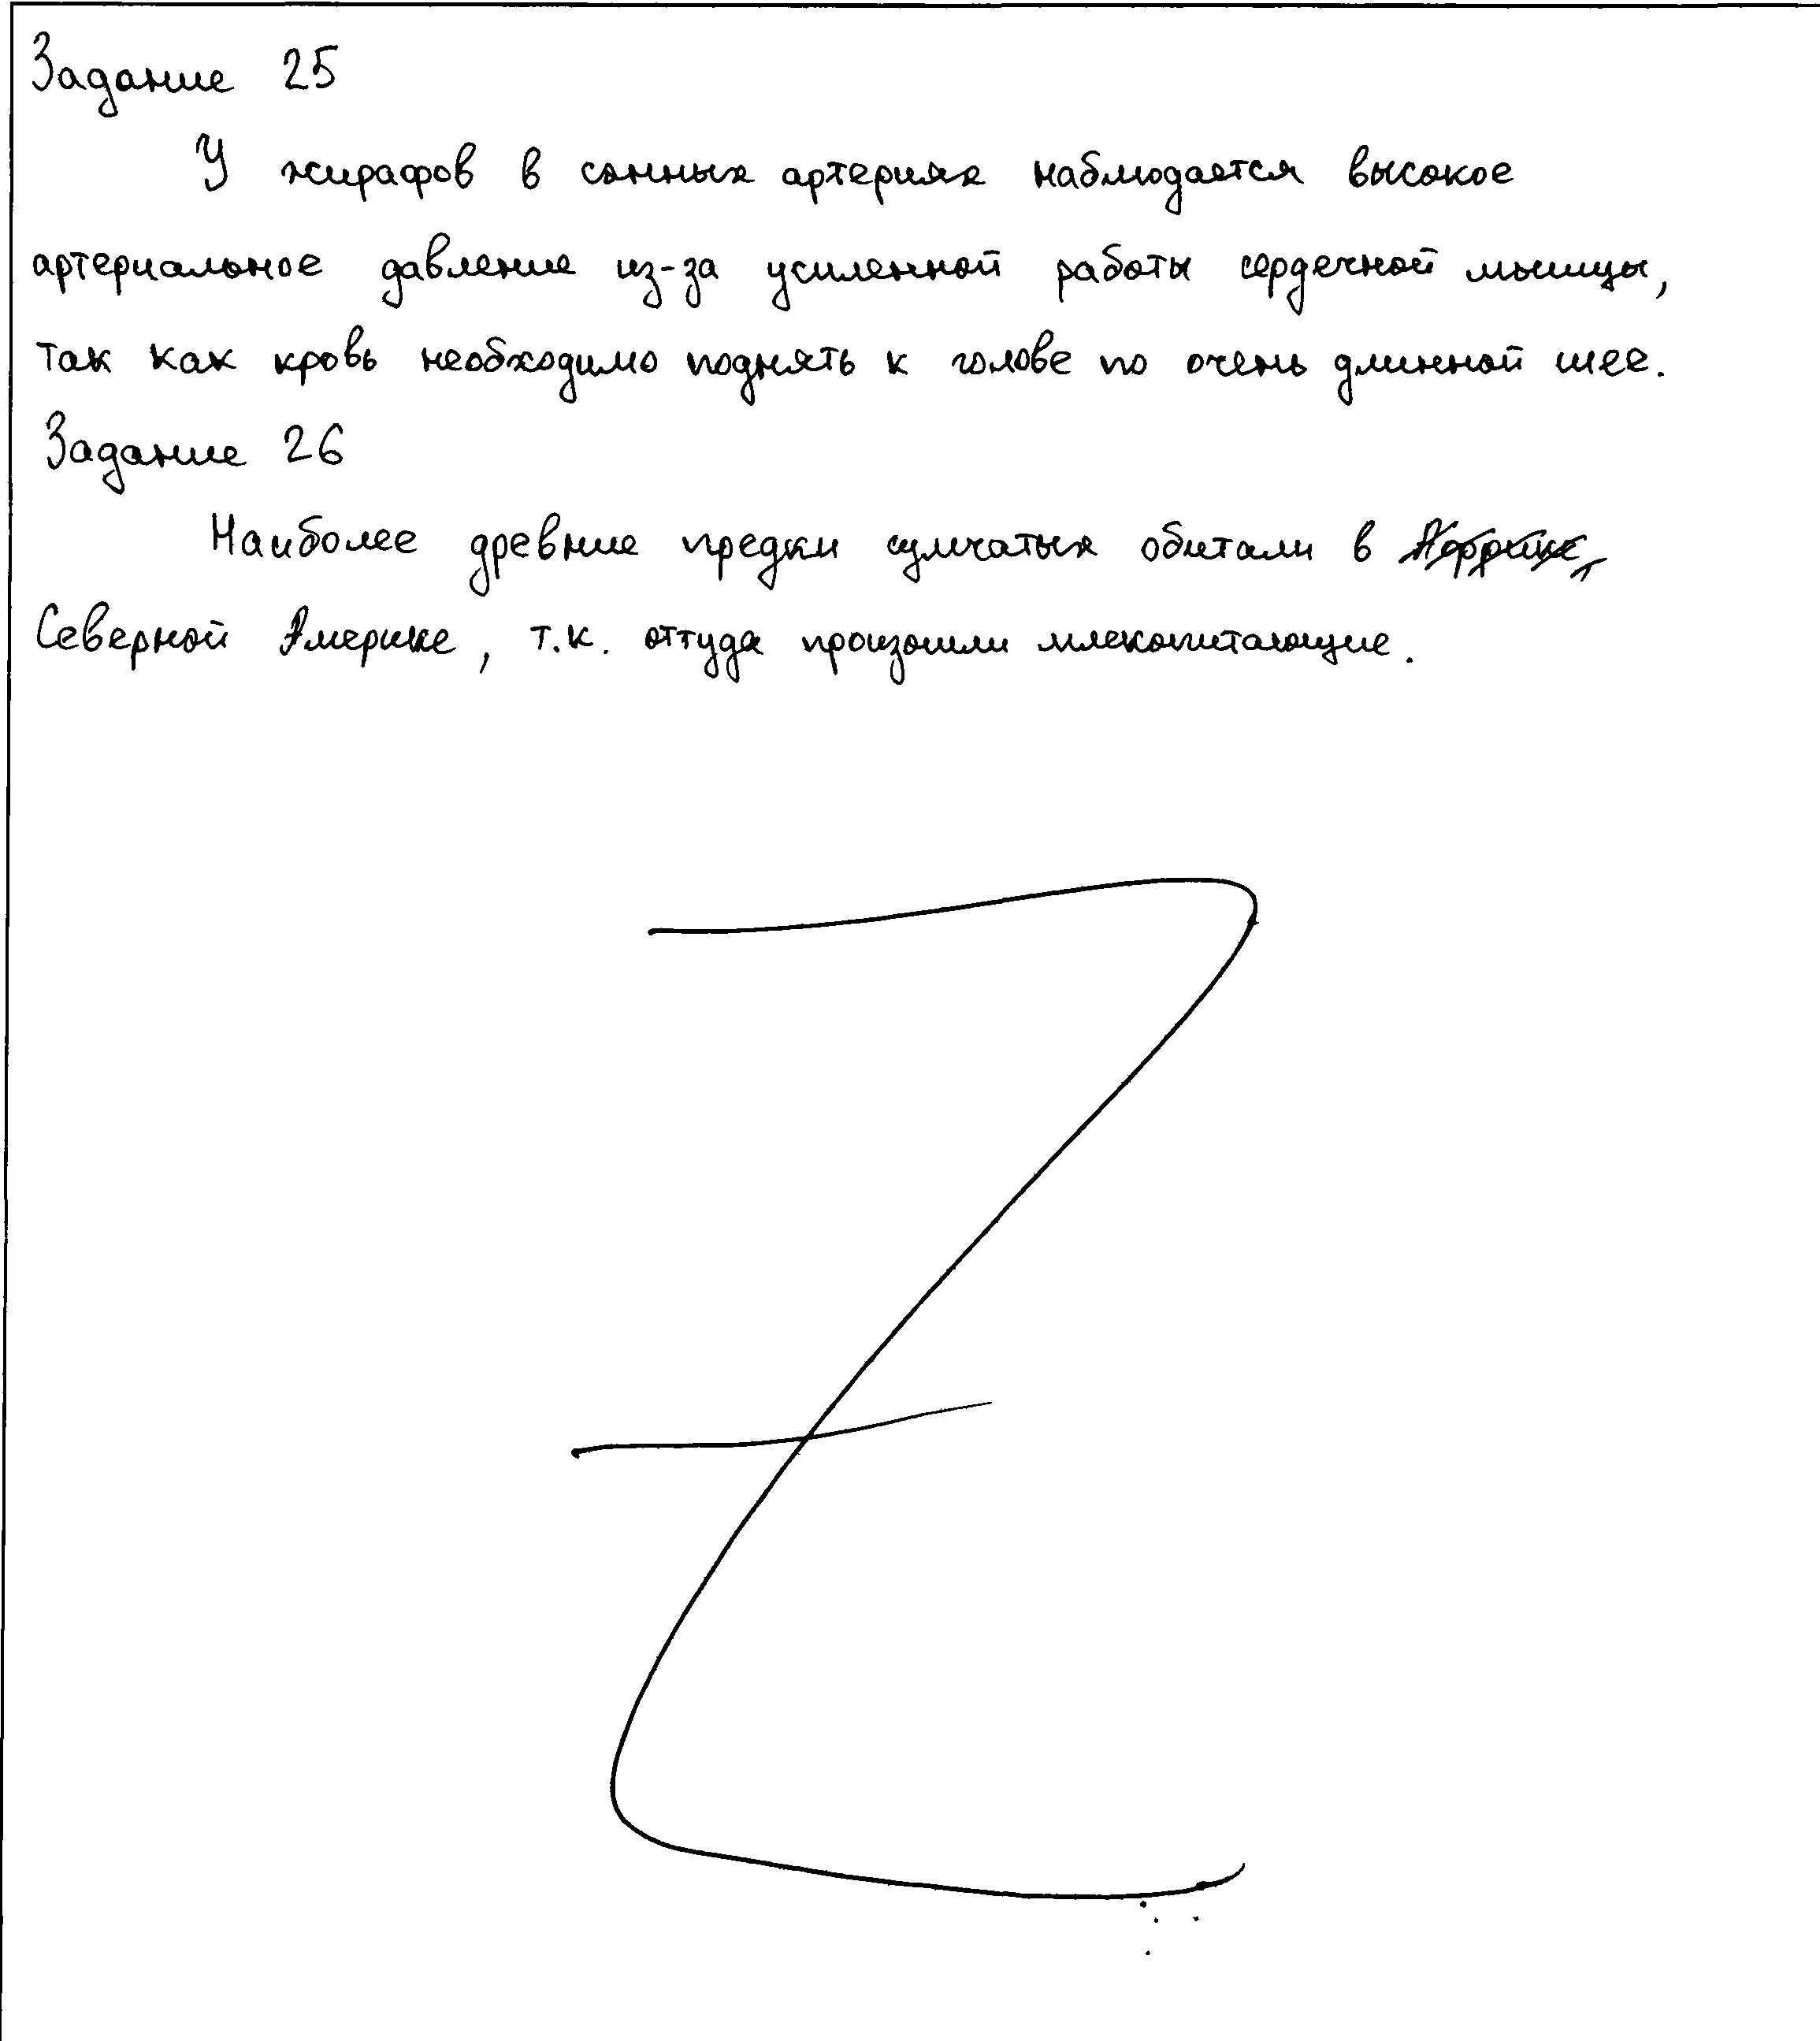 Задание 25
У жирафов в сонных артериях наблюдается высокое
артериальное давление из-за усиленной работы сердечной мышцы,
так как кровь необходимо поднять к голове по очень длинной шее.
Задание 26
Наиболее древние предки сумчатых обитали в Африке,
Северной Америке, т.к. оттуда произошли млекопитающие.